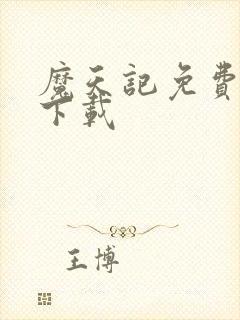 魔天記免費
下載
王博